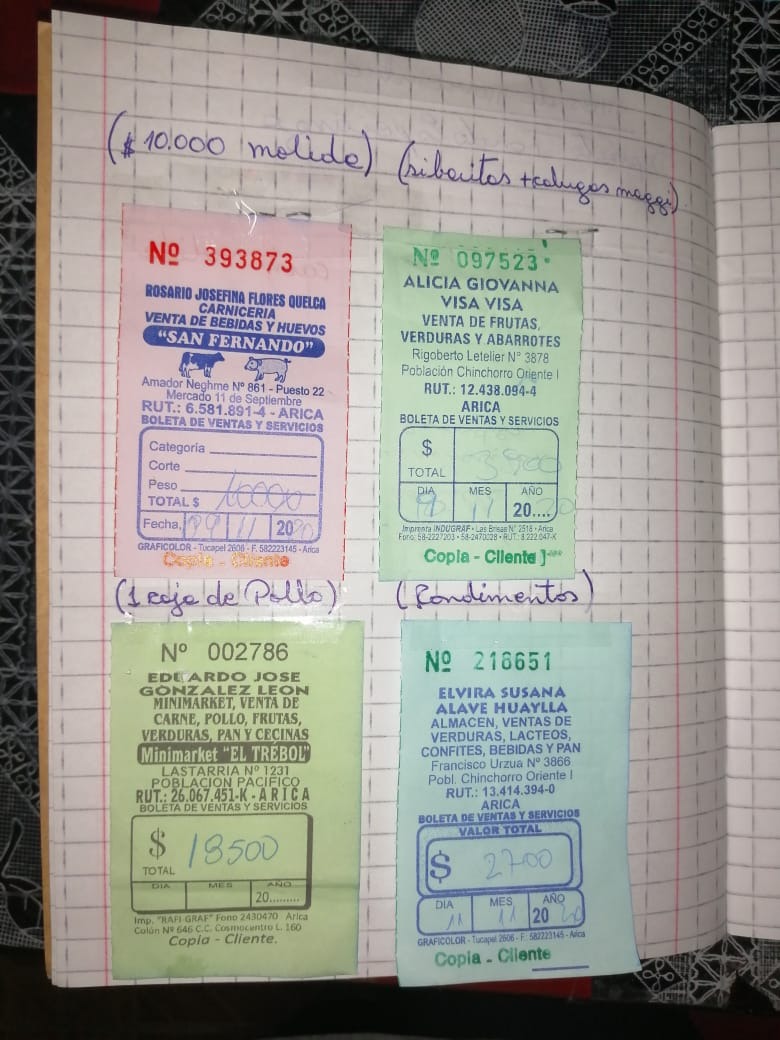 ($10.000 molida) (sibaritas + calugas maggi)
Nº 393873
ROSARIO JOSEFINA FLORES QUELCA
CARNICERIA
VENTA DE BEBIDAS Y HUEVOS
"SAN FERNANDO"
Amador Neghme Nº 861 - Puesto 22
Mercado 11 de Septiembre
RUT.: 6.581.891-4 - ARICA
BOLETA DE VENTAS Y SERVICIOS
Categoría
Corte
Peso
TOTAL $ 10000
Fecha, 09 11 2020
GRAFICOLOR - Tucapel 2606 - F. 582223145 - Arica
Copia - Cliente
Nº 097523
ALICIA GIOVANNA
VISA VISA
VENTA DE FRUTAS,
VERDURAS Y ABARROTES
Rigoberto Letelier Nº 3878
Población Chinchorro Oriente I
RUT.: 12.438.094-4
ARICA
BOLETA DE VENTAS Y SERVICIOS
$
TOTAL 3900
DIA MES AÑO
11 20....
Imprenta INDUGRAF • Las Brisas Nº 2518 • Arica
Fono: 58-2227203 • 58-2470028 • RUT.: 8.222.047-K
Copia - Cliente
(1 caja de Pollo) (Condimentos)
Nº 002786
EDUARDO JOSE
GONZALEZ LEON
MINIMARKET, VENTA DE
CARNE, POLLO, FRUTAS,
VERDURAS, PAN Y CECINAS
Minimarket "EL TRÉBOL"
LASTARRIA Nº 1231
POBLACION PACIFICO
RUT.: 26.067.451-K - ARICA
BOLETA DE VENTAS Y SERVICIOS
$ 18500
TOTAL
DIA MES AÑO
20.........
Imp. "RAFI-GRAF" Fono 2430470 Arica
Colón Nº 646 C.C. Cosmocentro L. 160
Copia - Cliente.
Nº 218651
ELVIRA SUSANA
ALAVE HUAYLLA
ALMACEN, VENTAS DE
VERDURAS, LACTEOS,
CONFITES, BEBIDAS Y PAN
Francisco Urzua Nº 3866
Pobl. Chinchorro Oriente I
RUT.: 13.414.394-0
ARICA
BOLETA DE VENTAS Y SERVICIOS
VALOR TOTAL
$ 2700
DIA MES AÑO
11 11 2020
GRAFICOLOR - Tucapel 2606 - F: 582223145 - Arica
Copia - Cliente